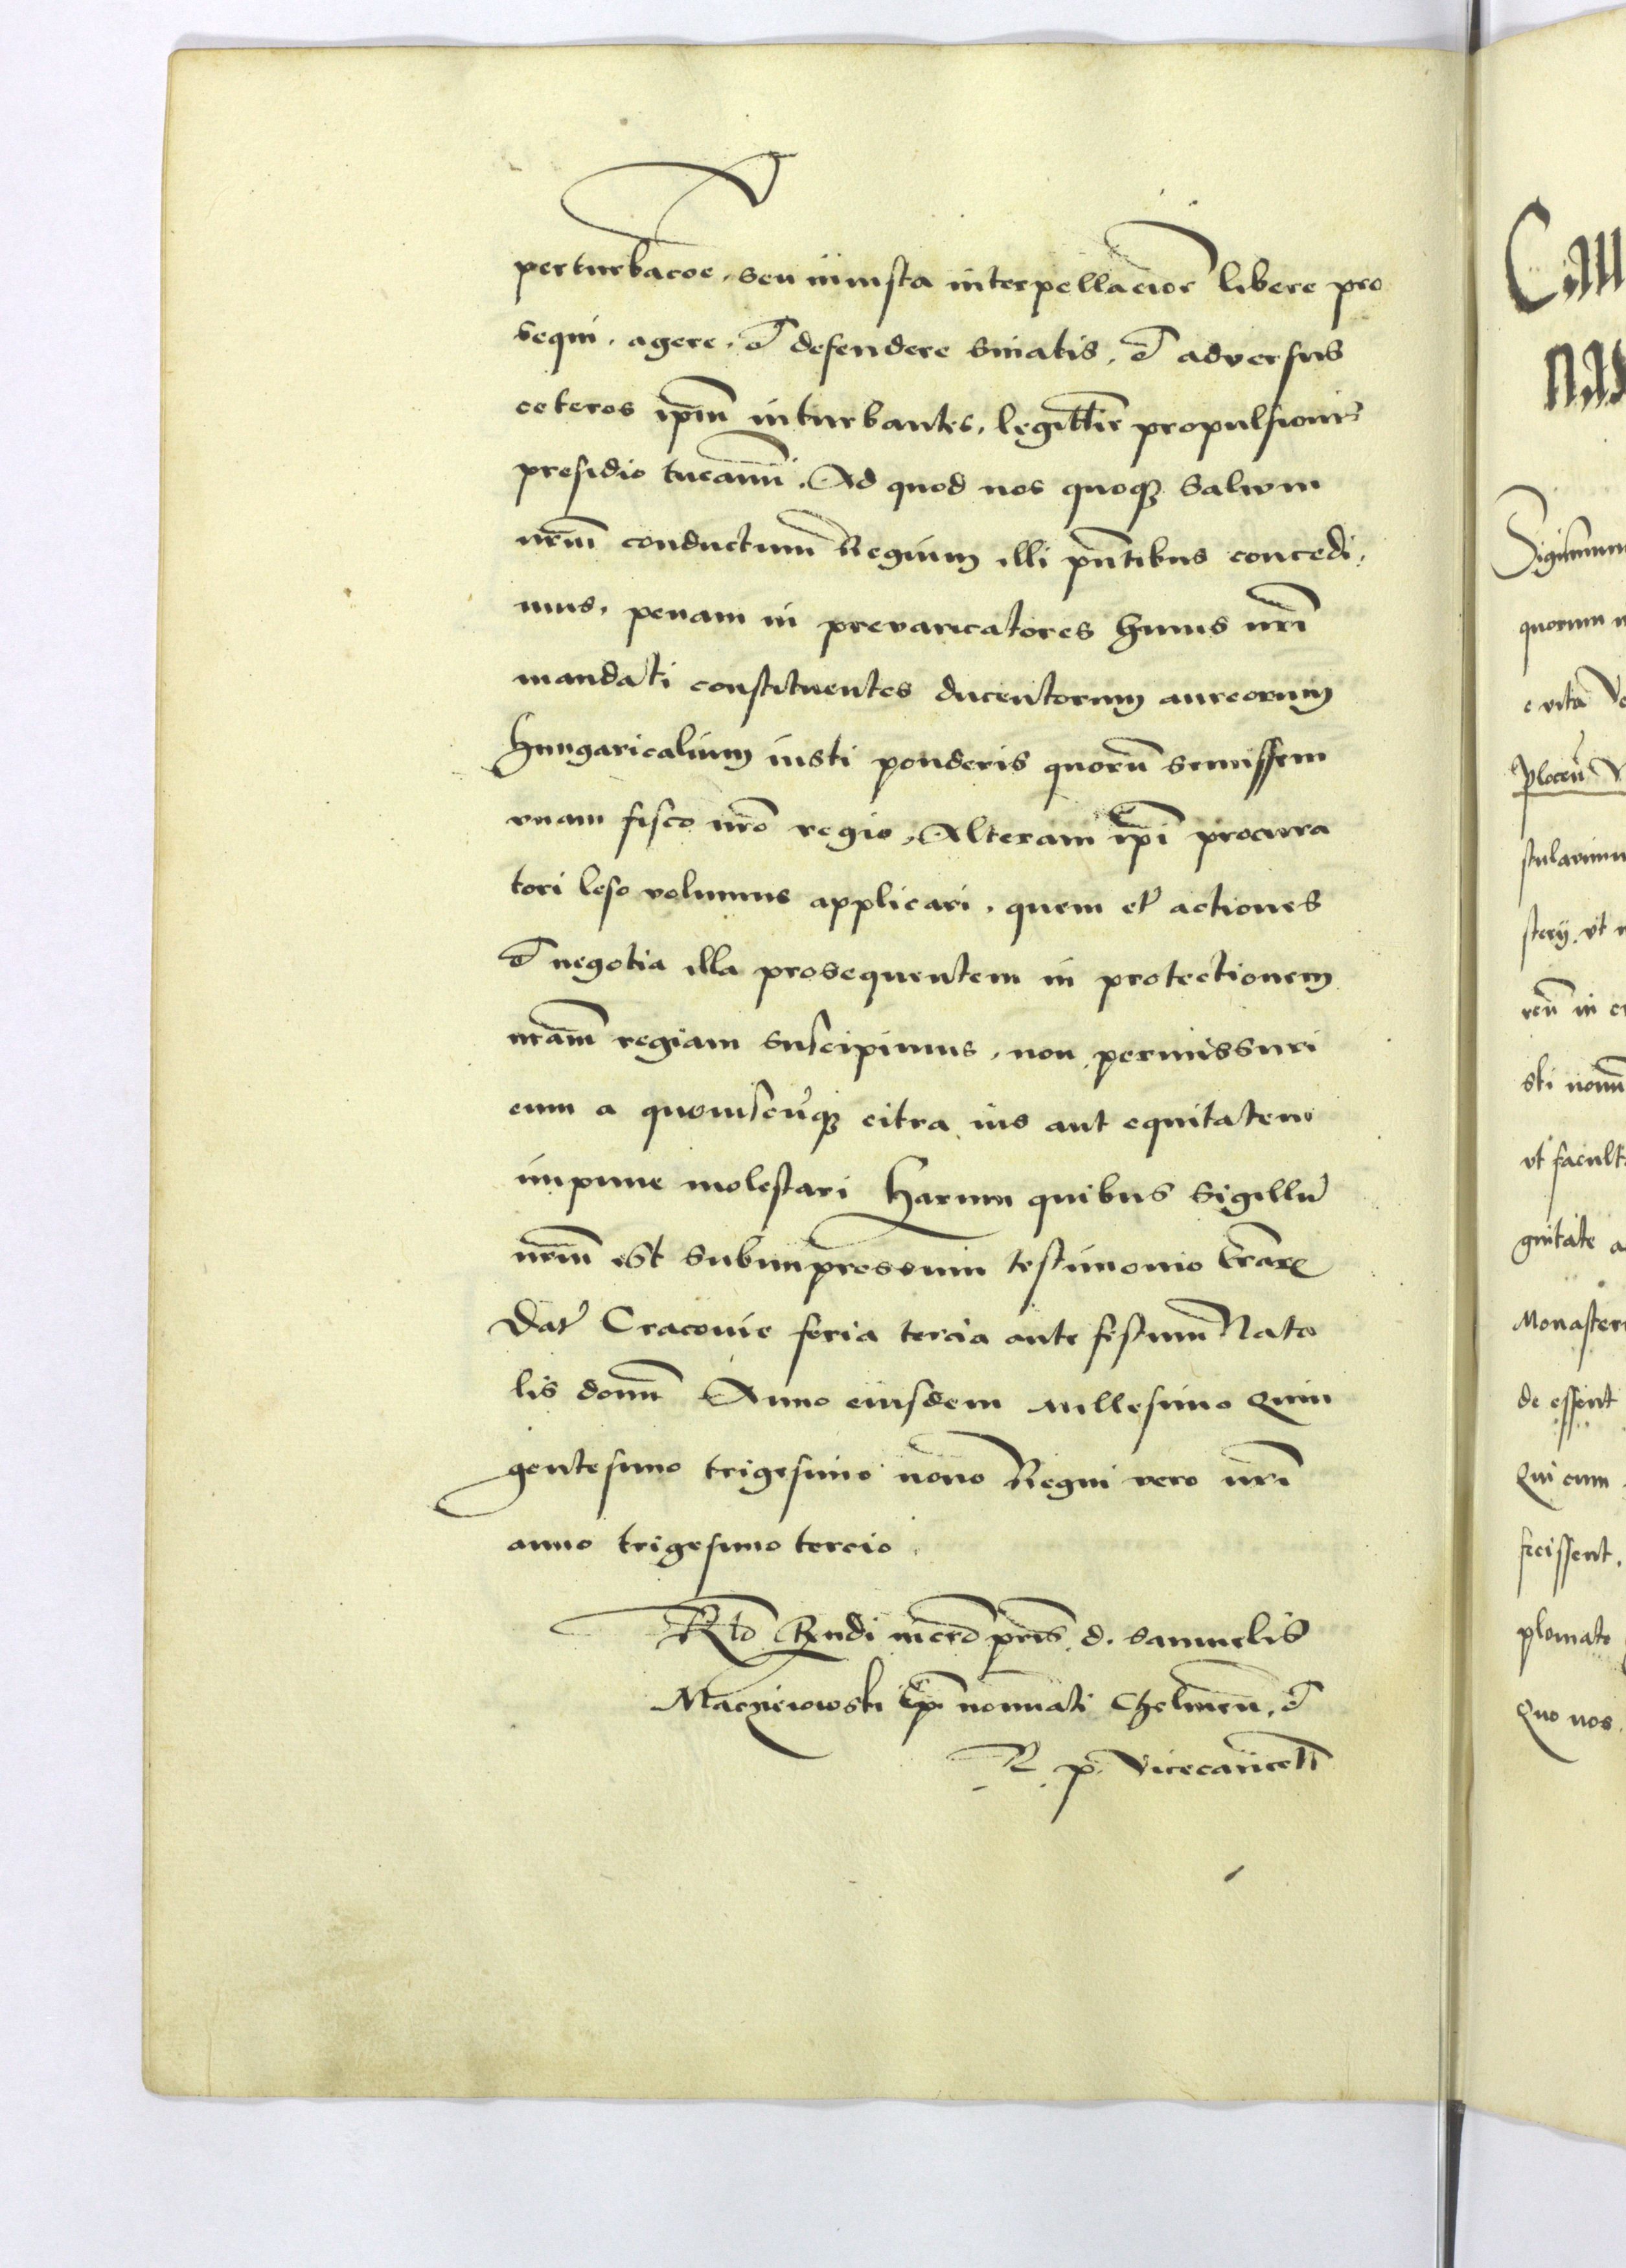 perturbacoe, seu iniusta interpellacioe libere pro
sequi, agere, et defendere sinatis, et adversus
ceteros ipm inturbantes, legittie propulsionis
presidio tueamini. Ad quod nos quoque saluum
nrm conductum Regium illi pntibus concedi,
mus, penam in prevaricatores huius nri
mandati constituentes ducentorum aureorum
hungaricalium iusti ponderis quoru semissem
vnam fisco nro regio, Alteram ipi procura
tori leso volumus applicari, quem et actiones
et negotia illa prosequentem in protectionem
nram regiam suscipimus, non permissuri
eum a quouiscuque citra ius aut equitatem
impune molestari Harum quibus Sigillu
nrm est subimpressum testimonio lrarum
Dat Cracouie feria tercia ante festum Nata
lis domini Anno eiusdem millesimo Quin
gentesimo trigesimo nono Regni vero nri
anno trigesimo tercio.
Rlo Rndi in pris d. Samuelis
Macziеiowski Epi nominati Chelmen, et
R. p. Vicecancell
Cau
nas
Sigismun
quorum
e vita
Plocen
stularimu
stery. vt
reu in
sti
vt facult
gnitate a
Monasteri
de essent
Qui cum
fecissent.
plomate
Quo nos.